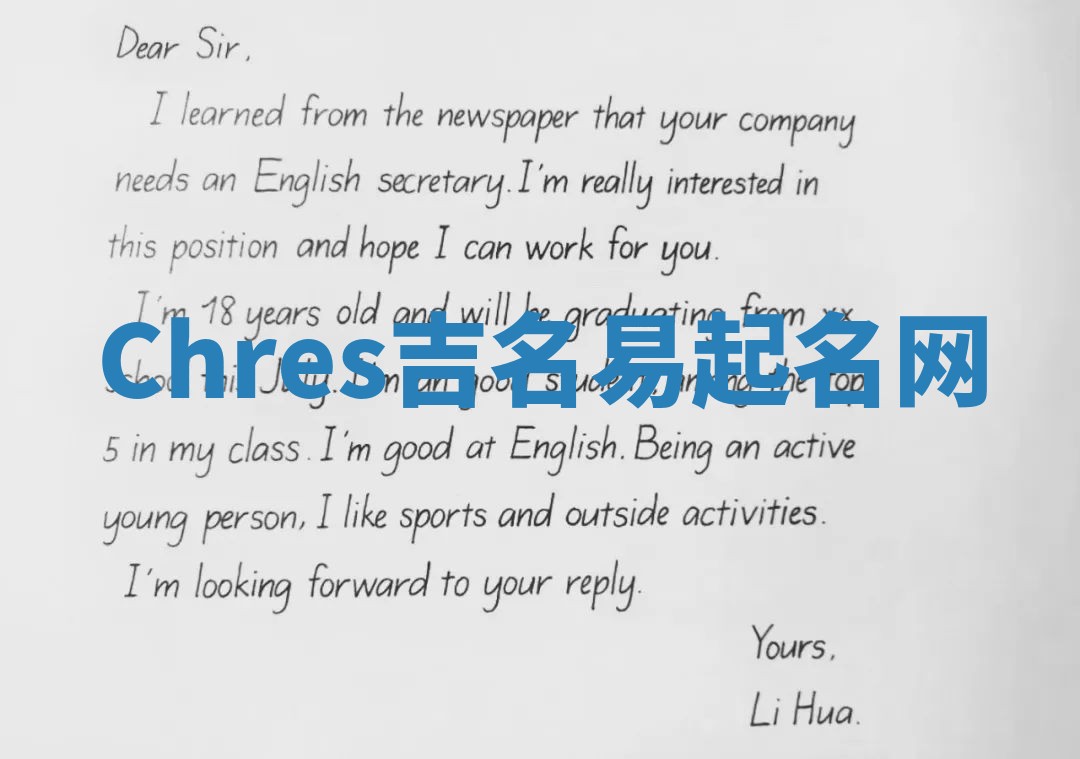 Dear Sir,
I learned from the newspaper that your company
needs an English secretary. I'm really interested in
this position and hope I can work for you.
I'm 18 years old and will be graduating from xx
Chres吉名易起名网
school this July. I'm an good student, among the top
5 in my class. I'm good at English. Being an active
young person, I like sports and outside activities.
I'm looking forward to your reply.
Yours,
Li Hua.